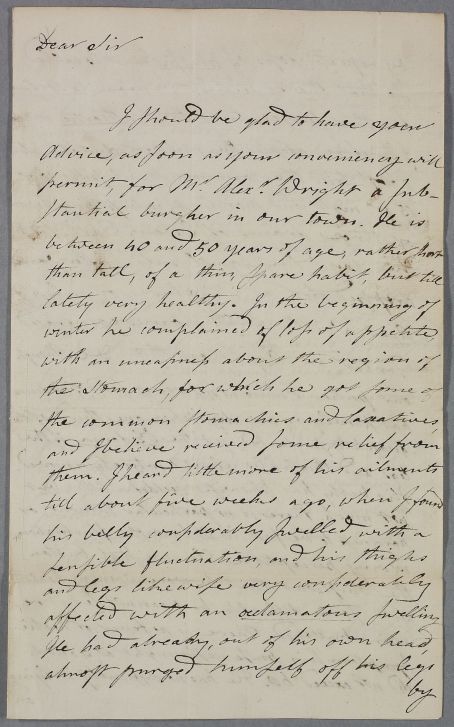 Dear Sir
I should be glad to have your
Advice, as soon as your conveniency will
permit, for Mr. Alexr. Wright a sub-
stantial burgher in our town. He is
between 40 and 50 years of age, rather short
than tall, of a thin, spare habit, but till
lately very healthy. In the beginning of
winter he complained of loss of appetite
with an uneasiness about the region of
the stomach, for which he got some of
the common stomachics and laxatives
and I believe received some relief from
them. I heard little more of his ailments
till about five weeks ago, when I found
his belly considerably swelled, with a
sensible fluctuation, and his thighs
and legs likewise very considerably
affected with an oedamatous swelling
He had already, out of his own head,
almost purged himself off his legs
by